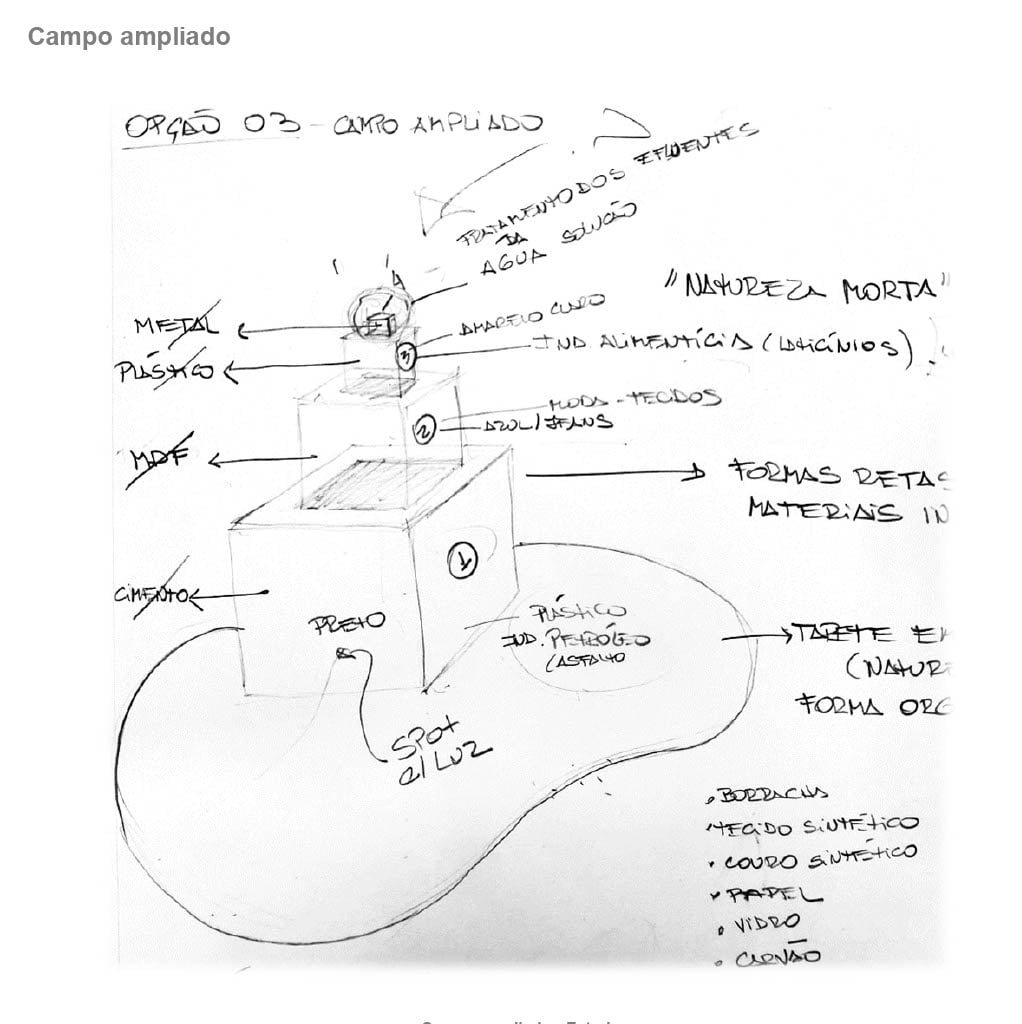 Campo ampliado
OPÇÃO 03 - CAMPO AMPLIADO
TRATAMENTO DOS EFLUENTES
DA
ÁGUA SOLUÇÃO
"NATUREZA MORTA"
METAL
AMARELO CLARO
3
IND. ALIMENTÍCIA (LATICÍNIOS)
PLÁSTICO
MODA - TECIDOS
2
AZUL/JEANS
MDF
FORMAS RETAS
MATERIAIS IN
1
CIMENTO
PRETO
PLÁSTICO
IND. PETRÓLEO
(ASFALTO
TAPETE EM
(NATURE
FORMA ORG
SPOT
C/ LUZ
• BORRACHA
• TECIDO SINTÉTICO
• COURO SINTÉTICO
• PAPEL
• VIDRO
• CARVÃO